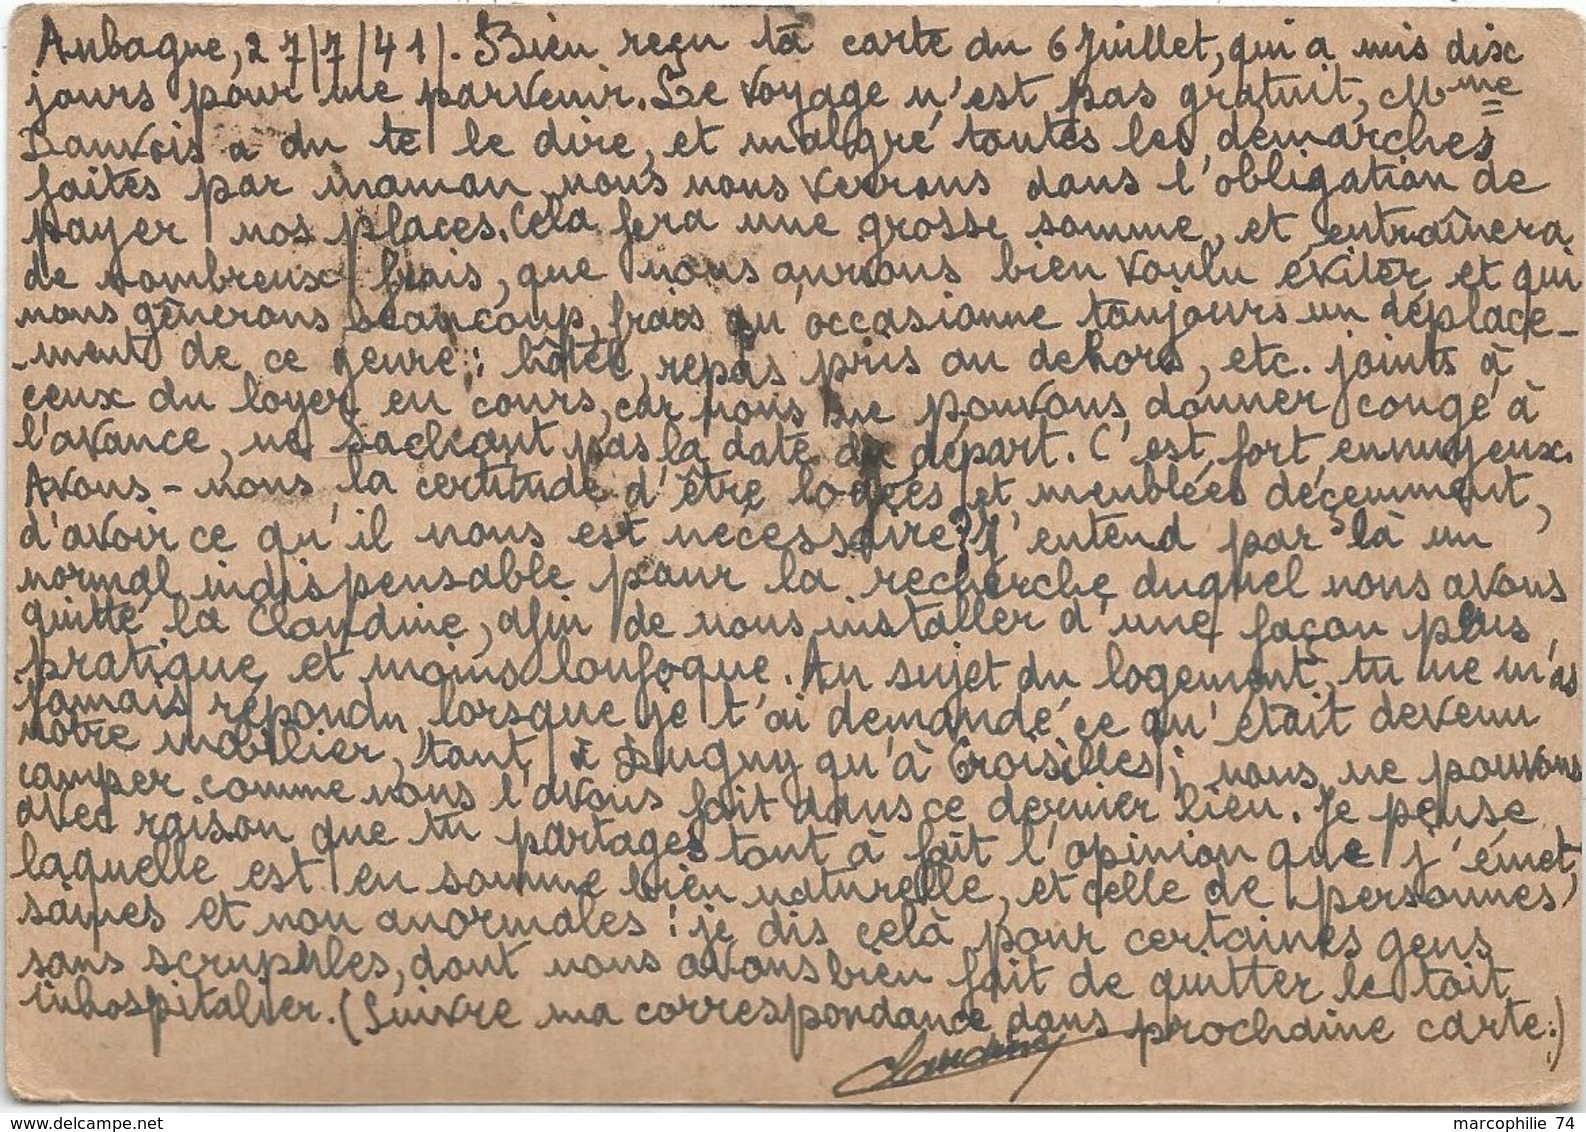 Aubagne, 27/7/41/. Bien reçu ta carte du 6 Juillet, qui a mis dix
jours pour me parvenir. Le voyage n'est pas gratuit, Mme
Bauvois a du te le dire, et malgré toutes les démarches
faites par maman, nous nous verrons dans l'obligation de
payer nos places. Cela fera une grosse somme, et entraînera
de nombreux frais, que nous aurions bien voulu éviter et qui
nous gênerons beaucoup, frais qu'occasionne toujours un déplace-
ment de ce genre : hôtel, repas pris au dehors, etc. joints à
ceux du loyer en cours, car nous ne pouvons donner congé à
l'avance, ne sachant pas la date du départ. C'est fort ennuyeux.
Avons-nous la certitude d'être logées et meublées décemment,
d'avoir ce qu'il nous est nécessaire? J'entend par là un
normal indispensable pour la recherche duquel nous avons
quitté la Claudine, afin de nous installer d'une façon plus
pratique et moins loufoque. Au sujet du logement, tu ne m'as
jamais répondu lorsque je t'ai demandé ce qu'était devenu
notre mobilier, tant à Dugny qu'à Croisilles; nous ne pouvons
camper comme nous l'avons fait dans ce dernier lieu. Je pense
avec raison que tu partages tout à fait l'opinion que j'émet,
laquelle est en somme bien naturelle, et celle de personnes
saines et non anormales : je dis celà pour certaines gens
sans scrupules, dont nous avons bien fait de quitter le toit
inhospitalier. (Suivre ma correspondance dans prochaine carte.)
Claudine
marcophilie 74